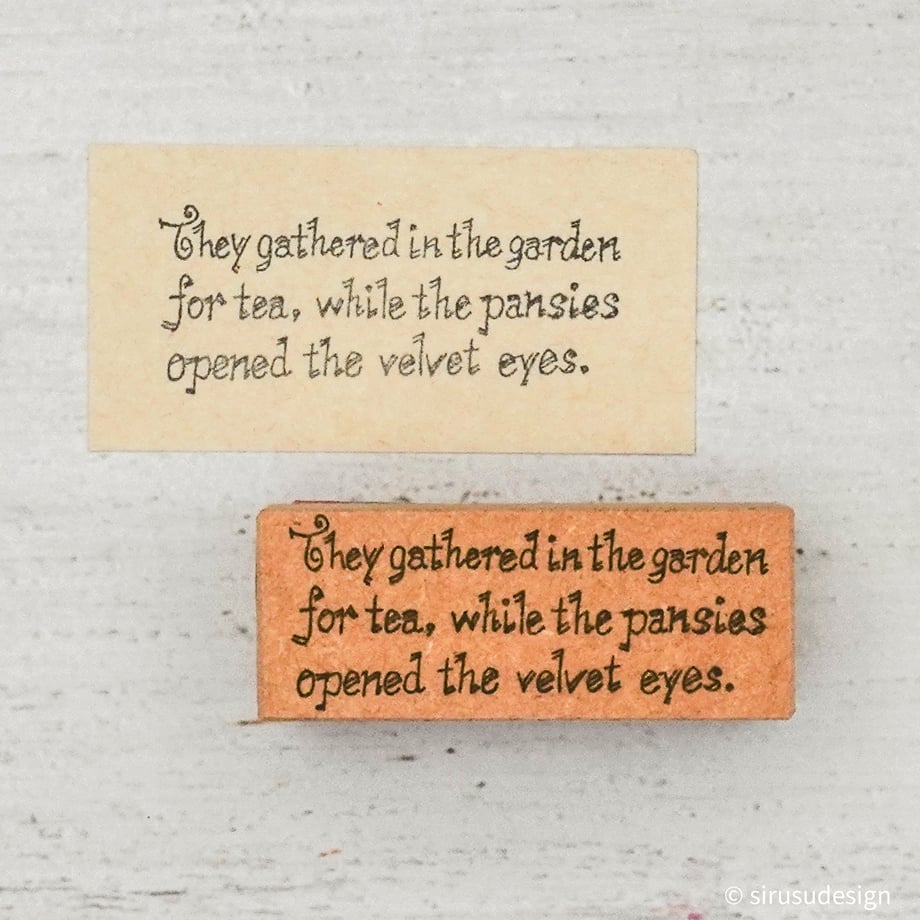 They gathered in the garden
for tea, while the pansies
opened the velvet eyes.
They gathered in the garden
for tea, while the pansies
opened the velvet eyes.
© sirusudesign